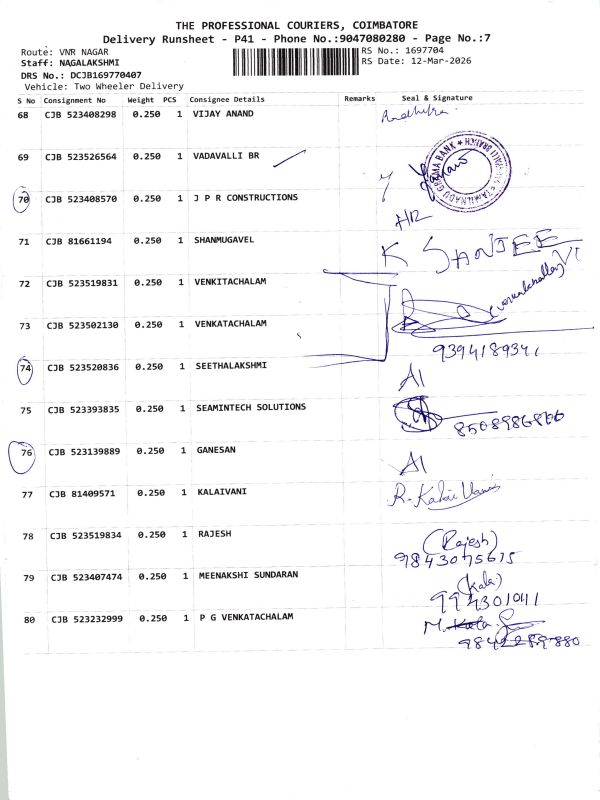 THE PROFESSIONAL COURIERS, COIMBATORE
Delivery Runsheet - P41 - Phone No.:9047080280 - Page No.:7
Route: VNR NAGAR RS No.: 1697704
Staff: NAGALAKSHMI RS Date: 12-Mar-2026
DRS No.: DCJB169770407
Vehicle: Two Wheeler Delivery
S No Consignment No Weight PCS Consignee Details Remarks Seal & Signature
68 CJB 523408298 0.250 1 VIJAY ANAND
69 CJB 523526564 0.250 1 VADAVALLI BR
TAMILNADU GRAMA BANK
70 CJB 523408570 0.250 1 J P R CONSTRUCTIONS
71 CJB 81661194 0.250 1 SHANMUGAVEL K SANJEE
VI
72 CJB 523519831 0.250 1 VENKITACHALAM
73 CJB 523502130 0.250 1 VENKATACHALAM
9394189341
74 CJB 523520836 0.250 1 SEETHALAKSHMI AI
75 CJB 523393835 0.250 1 SEAMINTECH SOLUTIONS
76 CJB 523139889 0.250 1 GANESAN AI
77 CJB 81409571 0.250 1 KALAIVANI R. Kalai Vani
78 CJB 523519834 0.250 1 RAJESH (Rajesh)
9843075615
79 CJB 523407474 0.250 1 MEENAKSHI SUNDARAN (Kala)
994301041
80 CJB 523232999 0.250 1 P G VENKATACHALAM M. Kala
9842289880